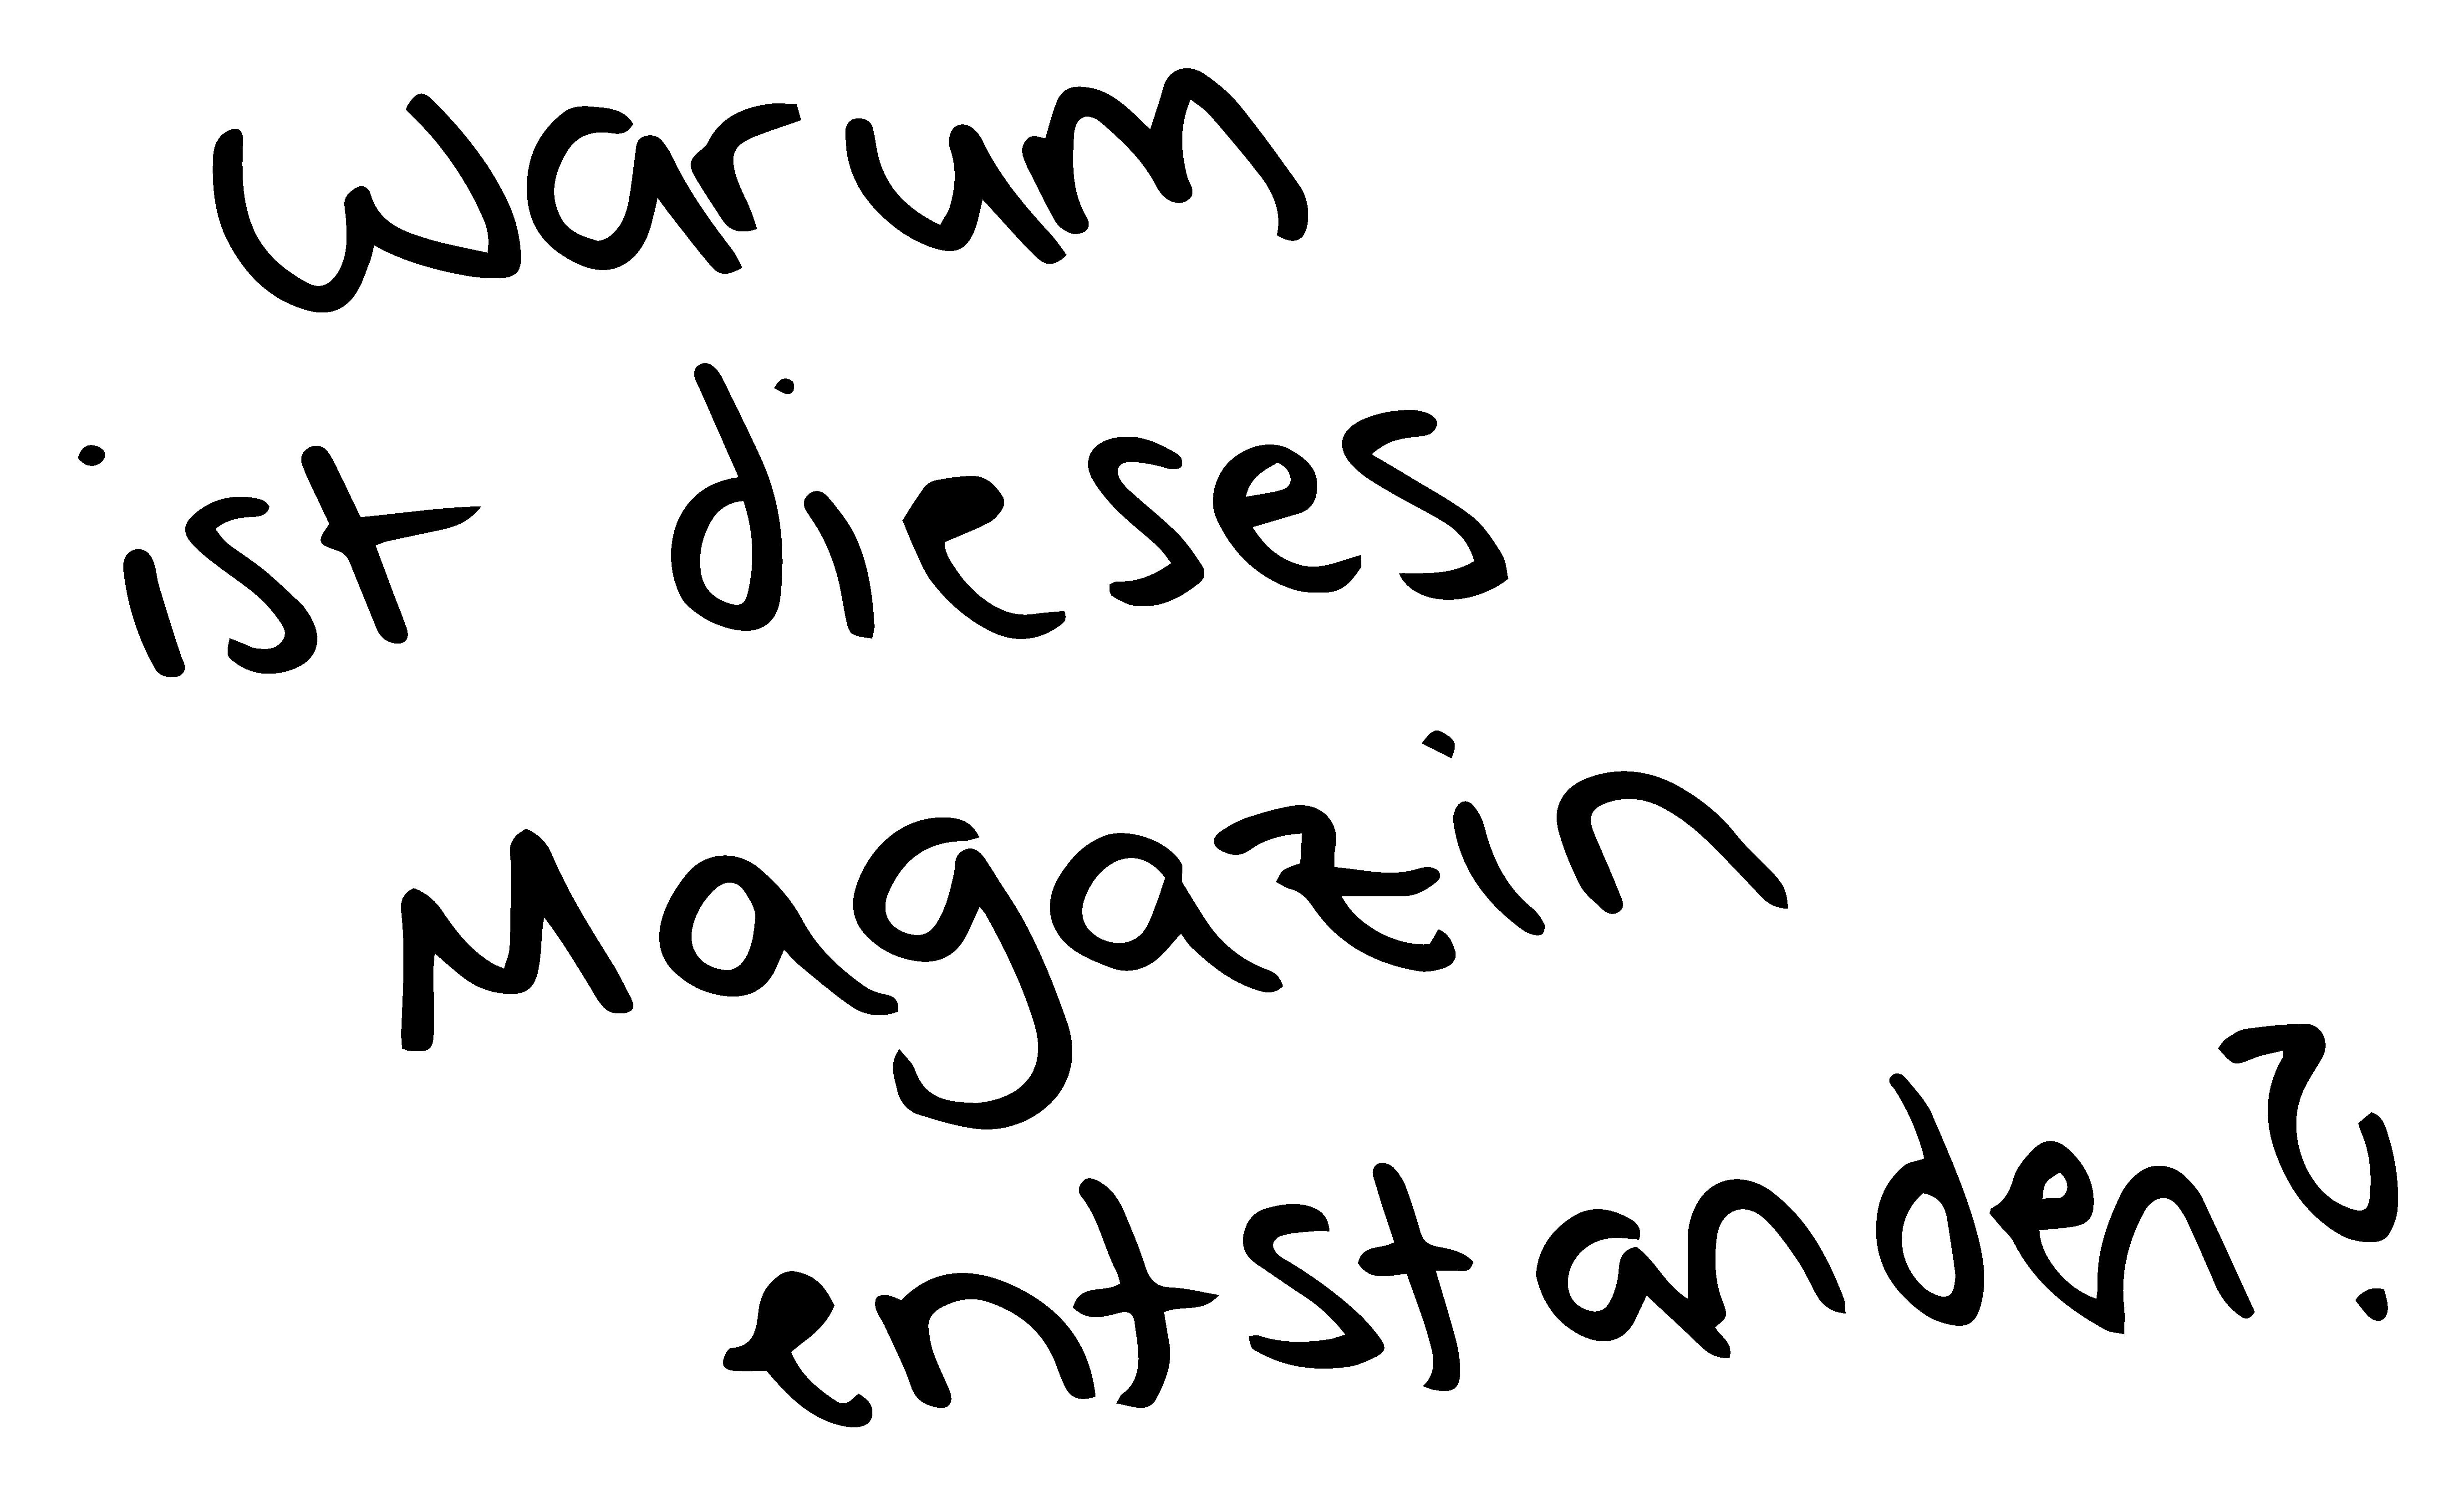 Warum
ist dieses
Magazin
entstanden?